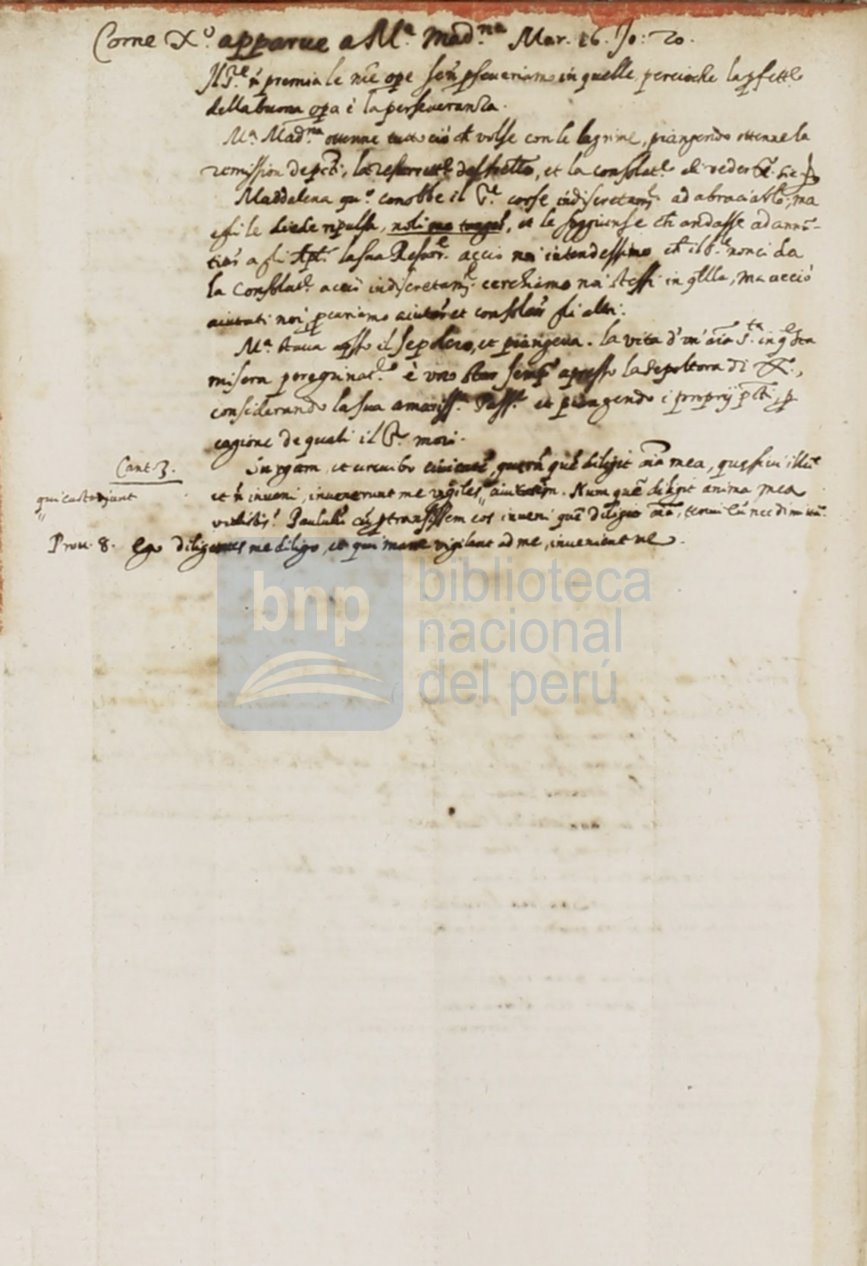 Come X.º apparue a M.ª Mad.na Mar. 16. Jo: 20.
Il S.re ñ premia le nře ope se ñ pseueriamo in quelle percioche la pfett.e
della buona opa è la perseueranza.
M.ª Mad.na ottenne tutto ciò ch̃ volse con le lagrime, piangendo ottenne la
remission de pcti, la resurrett.e del fratello, et la consolat.e di veder X.
Maddalena qñ conobbe il S.re corse indiscretam.te ad abraciarlo, ma
esso le diede repulsa, noli me tangere, et le soggiunse ch̃ andasse ad annũ-
tiar a gli Apli la sua Resurr.e acciò noi intendessimo ch̃ il S.re non ci da
la consolat.e acciò indiscretam.te cerchiamo noi stessi in qlla, ma acciò
aiutati noi pcuriamo aiutar et consolar gli altri.
M.ª staua apsso il sepolcro, et piangeua. la vita d'un' aĩa s.ta in q.sta
misera peregrinat.e è vno star sempre apresso la sepoltura di X.º,
considerando la sua amariss.a Pass.e et piangendo i proprij pcti, p
cagione de quali il S.re morì.
Cant. 3. Surgam, et circuibo ciuitatẽ, querã quẽ diligit aĩa mea, quesiui illũ
qui custodiunt et ñ inueni, inuenerunt me vigiles, ciuitatem. Num quẽ diligit anima mea
vidistis? Paululũ cũ ptransissem eos inueni quẽ diligit aĩa, tenui eũ nec dimittã.
Prou. 8. ego diligentes me diligo, et qui mane vigilant ad me, inuenient me.
bnp
biblioteca
nacional
del perú